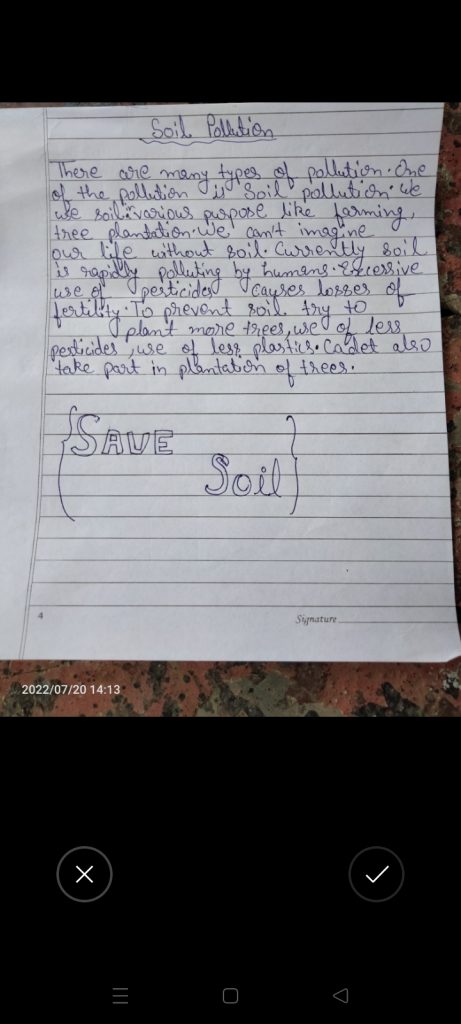 Soil Pollution
There are many types of pollution. One
of the pollution is Soil pollution. We
use soil in various purpose like farming,
tree plantation. We can't imagine
our life without soil. Currently soil
is rapidly polluting by humans. Excessive
use of pesticides causes losses of
fertility. To prevent soil try to
plant more trees, use of less
pesticides, use of less plastics. Cadet also
take part in plantation of trees.
{SAVE
Soil}
4
Signature
2022/07/20 14:13